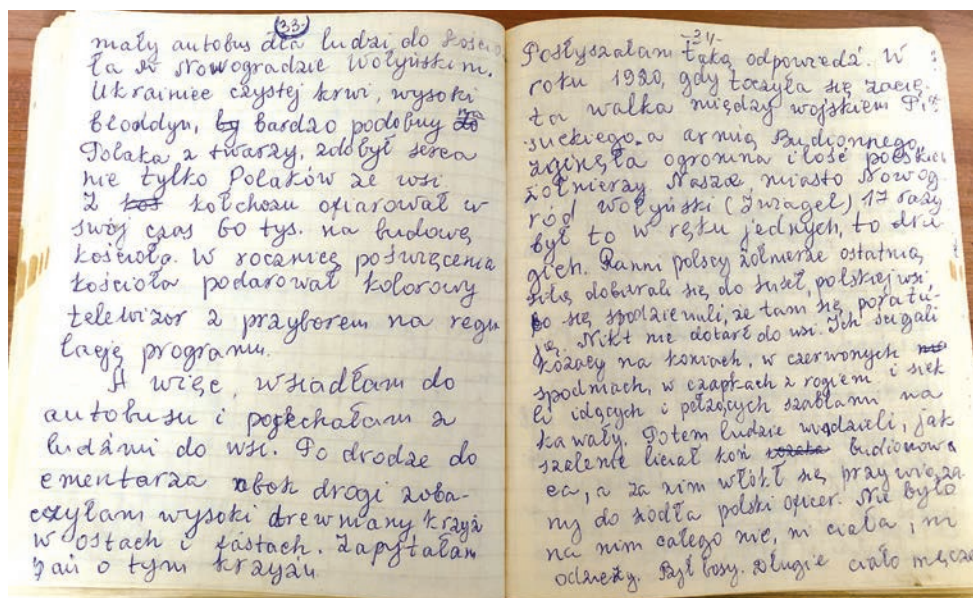 33.
mały autobus dla ludzi do kościo
ła w Nowogradzie Wołyńskim.
Ukrainiec czystej krwi, wysoki
błoddyn, by bardzo podobny
Polaka z twarzy, zdobył serca
nie tylko Polaków ze wsi
Z koś kołchozu ofiarował w
swój czas 60 tys. na budowę
kościoła. W rocznicę poświęcenia
kościoła podarował kolorowy
telewizor z przyborem na regu
lację programu.
A więc, wsiadłam do
autobusu i pojechałam z
ludźmi do wsi. Po drodze do
cmentarza obok drogi zoba-
czyłam wysoki drewniany krzyż
w ostach i
Zapytałam
o tym krzyżu
-34-
Posłyszałam taką odpowiedź. W
roku 1920, gdy toczyła się zacię
ta walka między wojskiem Pił
suckiego, a armią Budionnego,
zginęła ogromna ilość polskich
żołnierzy. Nasze, miasto Nowog
ród Wołyński (Zwiagel) 17 razy
był to w ręku jednych, to dru
gich. Ranni polscy żołnierze ostatnią
siłą dobierali się do Suseł, polskiej wsi
bo się spodziewali, że tam się poratu-
ją. Nikt nie dotarł do wsi. Ich ścigali
kozacy na koniach, w czerwonych
spodniach, w czapkach z rogiem i siek
li idących i pełzących szablami na
kawały. Potem ludzie widzieli, jak
szalenie leciał koń budionowa
ca, a za nim włókł się przywiąza
ny do siodła polski oficer. Nie było
na nim całego nic, ni ciała, ni
odzieży. Był bosy. Długie ciało męcze